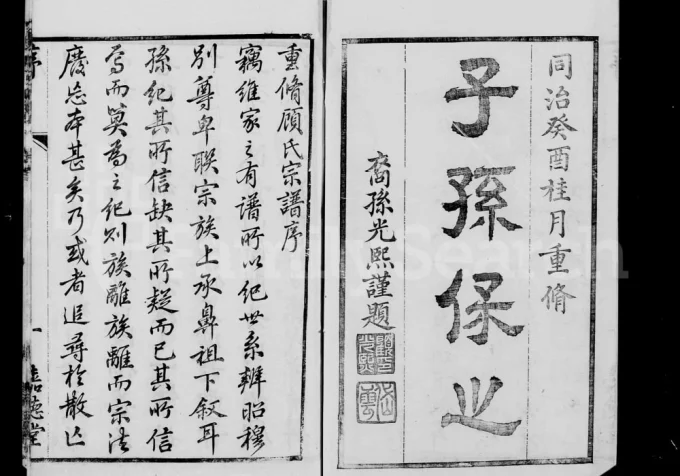 同治癸酉桂月重脩
子孫保之
裔孫光熙謹題
重脩顧氏宗譜序
竊維家之有譜所以紀世系辨昭穆
別尊卑聯宗族上承鼻祖下叙耳
孫紀其所信缺其所疑而已其所信
焉而莫為之紀則族離族離而宗法
廢忘本甚矣乃或者追尋於散亡
序
一
德堂
FamilySearch